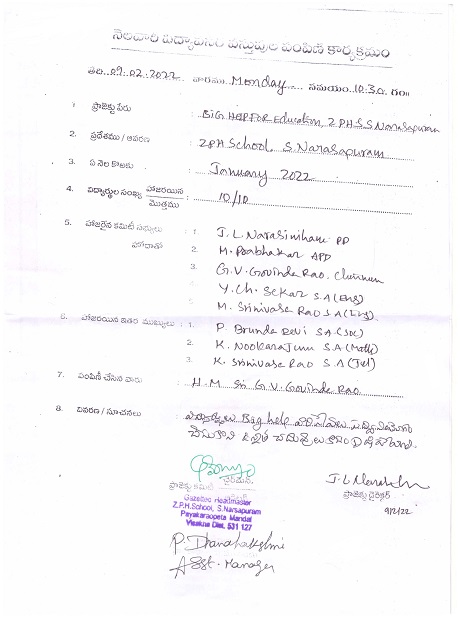 నెలవారి విద్యావసర వస్తువుల పంపిణి కార్యక్రమం
తేది. 09.02.2022 వారము Monday సమయం 10:30 గం||
1 ప్రాజెక్టు పేరు : BIG HELP FOR Education, Z.P.H.S. S. Narasapuram
2. ప్రదేశము / ఆవరణ : Z.P.H School, S. Narasapuram
3. ఏ నెల కొఱకు : January 2022
4. విద్యార్థుల సంఖ్య హాజరయిన / మొత్తము : 10/10
5. హాజరైన కమిటీ సభ్యులు : 1. J. L. Narasimham PD
హోదాతో 2. M. Prabhakar APD
3. G.V. Govinda Rao. Chairman
Y. Ch. Sekar S.A (Eng)
M. Srinivasa Rao S.A (Eng)
6. హాజరయిన ఇతర ముఖ్యులు : 1. P. Brunda Devi S.A (Soc)
2. K. Nookaraju S.A (Maths)
3. K. Srinivasa Rao S.A (Tel)
7. పంపిణీ చేసిన వారు : H.M Sri G.V. Govinda Rao
8. వివరణ / సూచనలు : విద్యార్థులు Big help
ప్రాజెక్టు కమిటీ ఛైర్మన్.
Gazetted Headmaster
Z.P.H.School, S.Narsapuram
Payakaraopeta Mandal
Visakha Dist. 531 127
J. L. Narasimham
ప్రాజెక్టు డైరెక్టర్
9/2/22
P. Dhanalakshmi
Asst. Manager